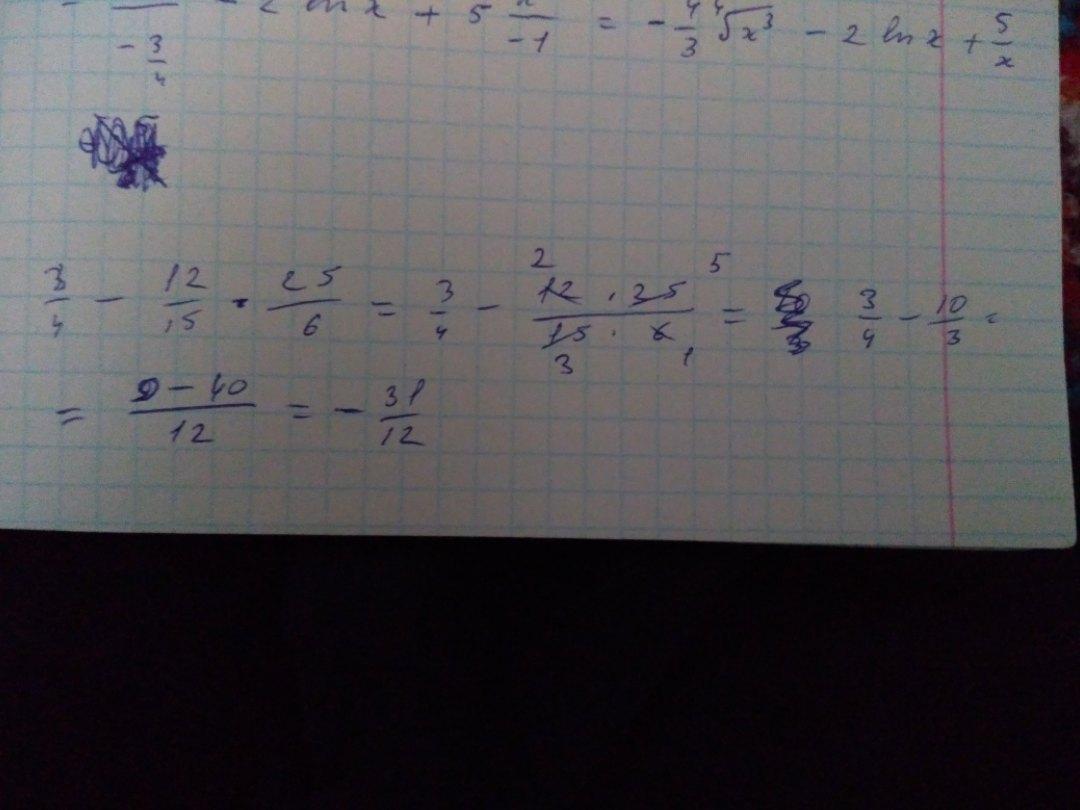 - 3/4 - 2 ln x + 5 x/-1 = - 4/3 ∜x³ - 2 ln x + 5/x
3/4 - 12/15 · 25/6 = 3/4 - 12 · 25 / 15 · 6 = 3/4 - 10/3 =
= 9 - 40 / 12 = - 31/12